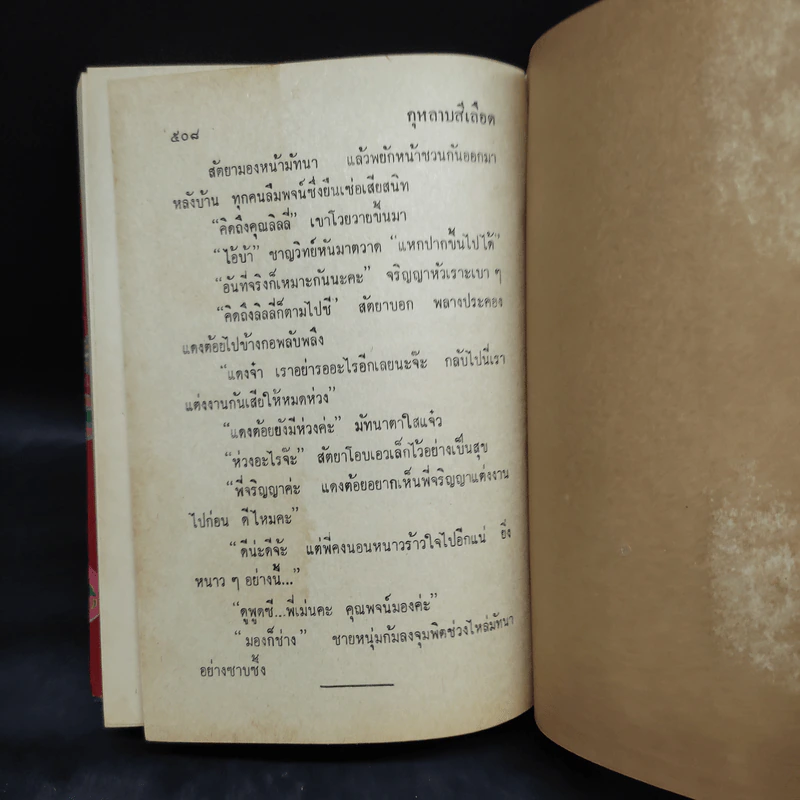 กุหลาบสีเลือด
๕๐๘
สัตยามองหน้ามัทนา แล้วพยักหน้าชวนกันออกมา
หลังบ้าน ทุกคนลืมพจน์ซึ่งยืนเซ่อเสียสนิท
“คิดถึงคุณลิลลี่” เขาโวยวายขึ้นมา
“ไอ้บ้า” ชาญวิทย์หันมาตวาด “แหกปากขึ้นไปได้”
“อันที่จริงก็เหมาะกันนะคะ” จริญญาหัวเราะเบา ๆ
“คิดถึงลิลลี่ก็ตามไปซี” สัตยาบอก พลางประคอง
แดงต้อยไปข้างกอพลับพลึง
“แดงจ๋า เราอย่ารออะไรอีกเลยนะจ๊ะ กลับไปนี่เรา
แต่งงานกันเสียให้หมดห่วง”
“แดงต้อยยังมีห่วงค่ะ” มัทนาตาใสแจ๋ว
“ห่วงอะไรจ๊ะ” สัตยาโอบเอวเล็กไว้อย่างเป็นสุข
“พี่จริญญาค่ะ แดงต้อยอยากเห็นพี่จริญญาแต่งงาน
ไปก่อน ดีไหมคะ”
“ดีน่ะดีจ้ะ แต่พี่คงนอนหนาวร้าวใจไปอีกแน่ ยิ่ง
หนาว ๆ อย่างนี้...”
“ดูพูดซี...พี่เม่นคะ คุณพจน์มองค่ะ”
“มองก็ช่าง” ชายหนุ่มก้มลงจุมพิตช่วงไหล่มัทนา
อย่างซาบซึ้ง